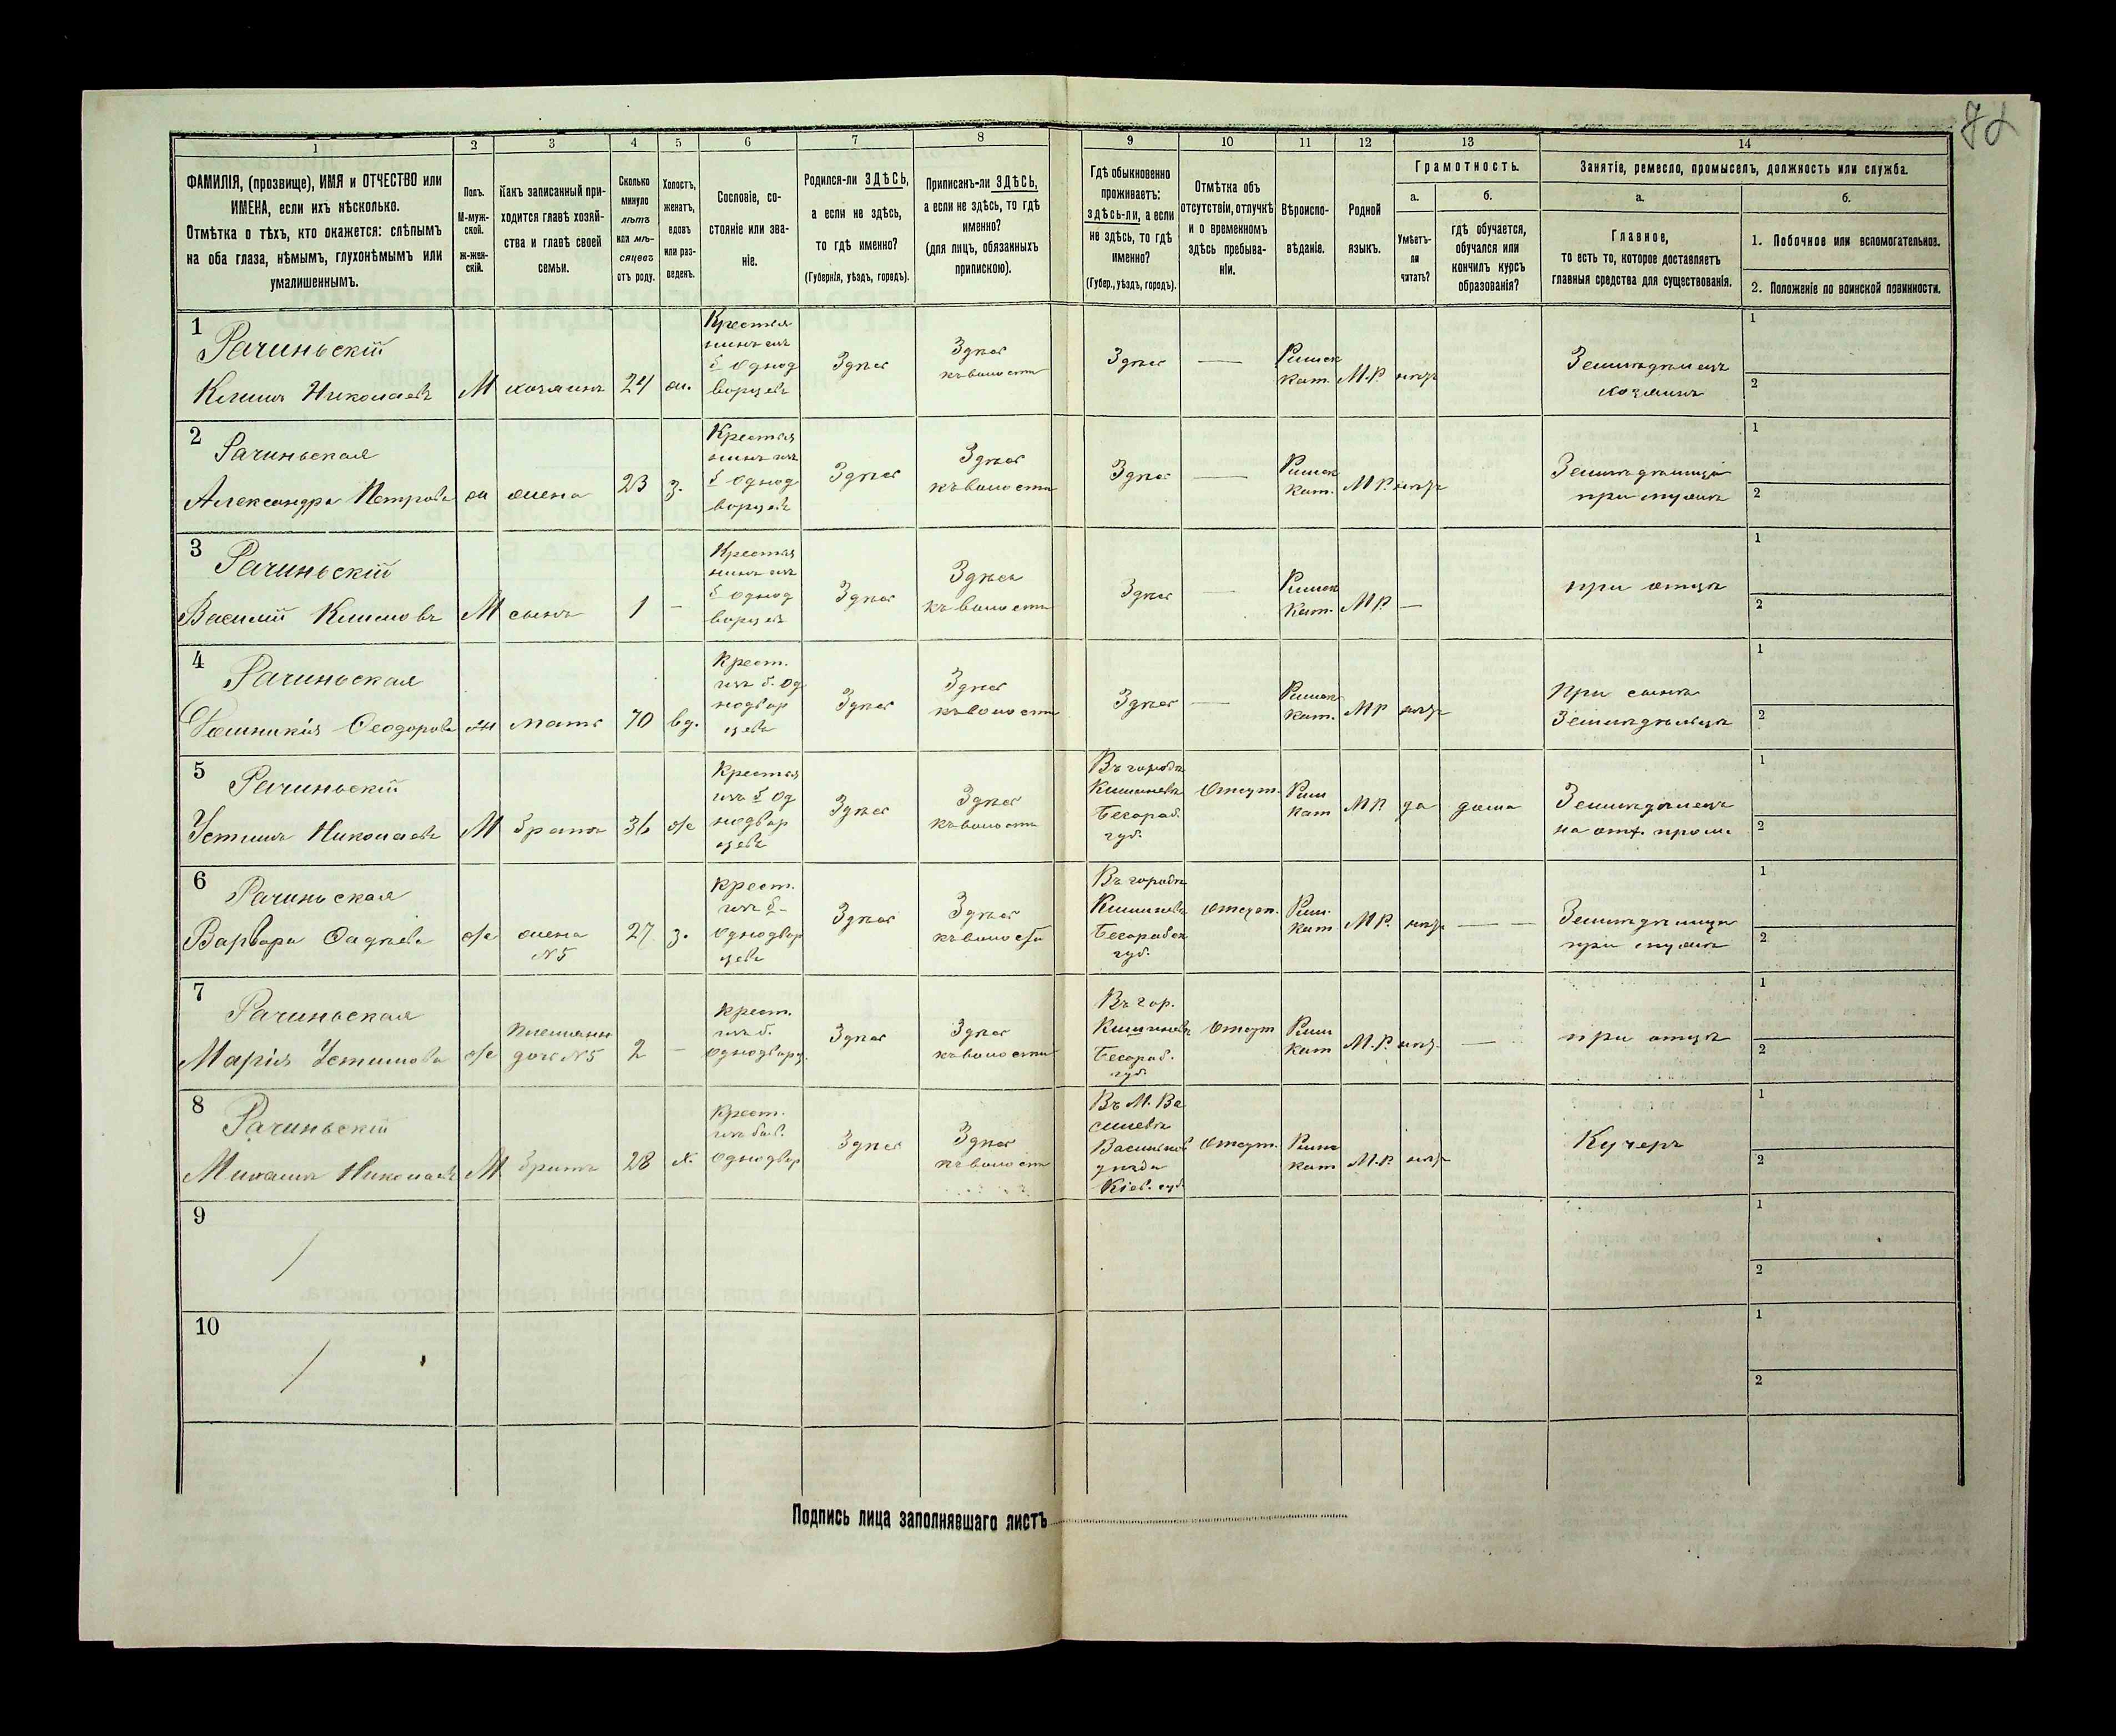 72
1 2 3 4 5 6 7 8 9 10 11 12 13 14
ФАМИЛІЯ, (прозвище), ИМЯ и ОТЧЕСТВО или
ИМЕНА, если ихъ нѣсколько.
Отмѣтка о тѣхъ, кто окажется: слѣпымъ
на оба глаза, нѣмымъ, глухонѣмымъ или
умалишеннымъ.
Полъ.
М-муж-
ской.
ж-жен-
скій.
Какъ записанный при-
ходится главѣ хозяй-
ства и главѣ своей
семьи.
Сколько
минуло
лѣтъ
или мѣ-
сяцевъ
отъ роду.
Холостъ,
женатъ,
вдовъ
или раз-
веденъ.
Сословіе, со-
стояніе или зва-
ніе.
Родился-ли ЗДѢСЬ,
а если не здѣсь,
то гдѣ именно?
(Губернія, уѣздъ, городъ).
Приписанъ-ли ЗДѢСЬ,
а если не здѣсь, то гдѣ
именно?
(для лицъ, обязанныхъ
припискою).
Гдѣ обыкновенно
проживаетъ:
здѣсь-ли, а если
не здѣсь, то гдѣ
именно?
(Губер., уѣздъ, городъ).
Отмѣтка объ
отсутствіи, отлучкѣ
и о временномъ
здѣсь пребыва-
ніи.
Вѣроиспо-
вѣданіе.
Родной
языкъ.
Грамотность.
а.
Умѣетъ-
ли
читать?
б.
гдѣ обучается,
обучался или
кончилъ курсъ
образованія?
Занятіе, ремесло, промыселъ, должность или служба.
а.
Главное,
то есть то, которое доставляетъ
главныя средства для существованія.
б.
1. Побочное или вспомогательное.
2. Положеніе по воинской повинности.
1
Рачиньскій
Климъ Николаевъ
М
хозяинъ
24
Крестья
нинъ изъ
б однод
ворцевъ
Здѣсь
Здѣсь
къ волости
Здѣсь
—
Римск
кат.
М.Р.
нѣтъ
Земледѣлецъ
хозяинъ
1
2
2
Рачиньская
Александра Петрова
ж
жена
23
з.
Крестья
нинъ изъ
б однод
ворцевъ
Здѣсь
Здѣсь
къ волости
Здѣсь
—
Римск
кат.
М.Р.
нѣтъ
Земледѣлица
при мужѣ
1
2
3
Рачиньскій
Василій Климовъ
М
сынъ
1
-
Крестья
нинъ изъ
б однод
ворцевъ
Здѣсь
Здѣсь
къ волости
Здѣсь
—
Римск
Кат.
МР.
—
при отцѣ
1
2
4
Рачиньская
Ѳеодорова
ж
мать
70
вд.
Крест.
изъ б. Од
нодвор
цевъ
Здѣсь
Здѣсь
къ волости
Здѣсь
—
Римск
Кат.
МР
нѣтъ
При сынѣ
Земледѣльцѣ
1
2
5
Рачиньскій
Устимъ Николаевъ
М
братъ
36
ж
Крестья
изъ б Од
нодвор
цевъ
Здѣсь
Здѣсь
къ волости
Въ городѣ
Кишиневѣ
Бесараб.
губ.
Отсут.
Рим
Кат
МР
да
дома
Земледѣлецъ
на отх. пром.
1
2
6
Рачиньская
Варвара
ж
жена
№5
27
з.
Крест.
изъ б-
Однодвор
цевъ
Здѣсь
Здѣсь
къ волости
Въ городѣ
Кишиневѣ
Бесарабск
губ.
Отсут.
Рим.
Кат
МР.
нѣтъ
— —
Земледѣлица
при мужѣ
1
2
7
Рачиньская
Марія Устимова
ж
Племянн
дочь №5
2
-
Крест.
изъ б.
Однодворц.
Здѣсь
Здѣсь
къ волости
Въ гор.
Кишиневѣ
Бесараб.
губ.
Отсут
Рим
Кат
М.Р.
нѣт.
—
при отцѣ
1
2
8
Рачиньскій
Михаилъ Николаевъ
М.
братъ
28
х.
Крест.
изъ быв.
Однодвор
Здѣсь
Здѣсь
къ волости
Въ М. Ва
силевѣ
Васильков
уѣзда
Кіев. губ.
Отсут.
Римс
кат
М.Р.
нѣтъ
Кучеръ
1
2
9
1
2
10
1
2
Подпись лица заполнявшаго листъ